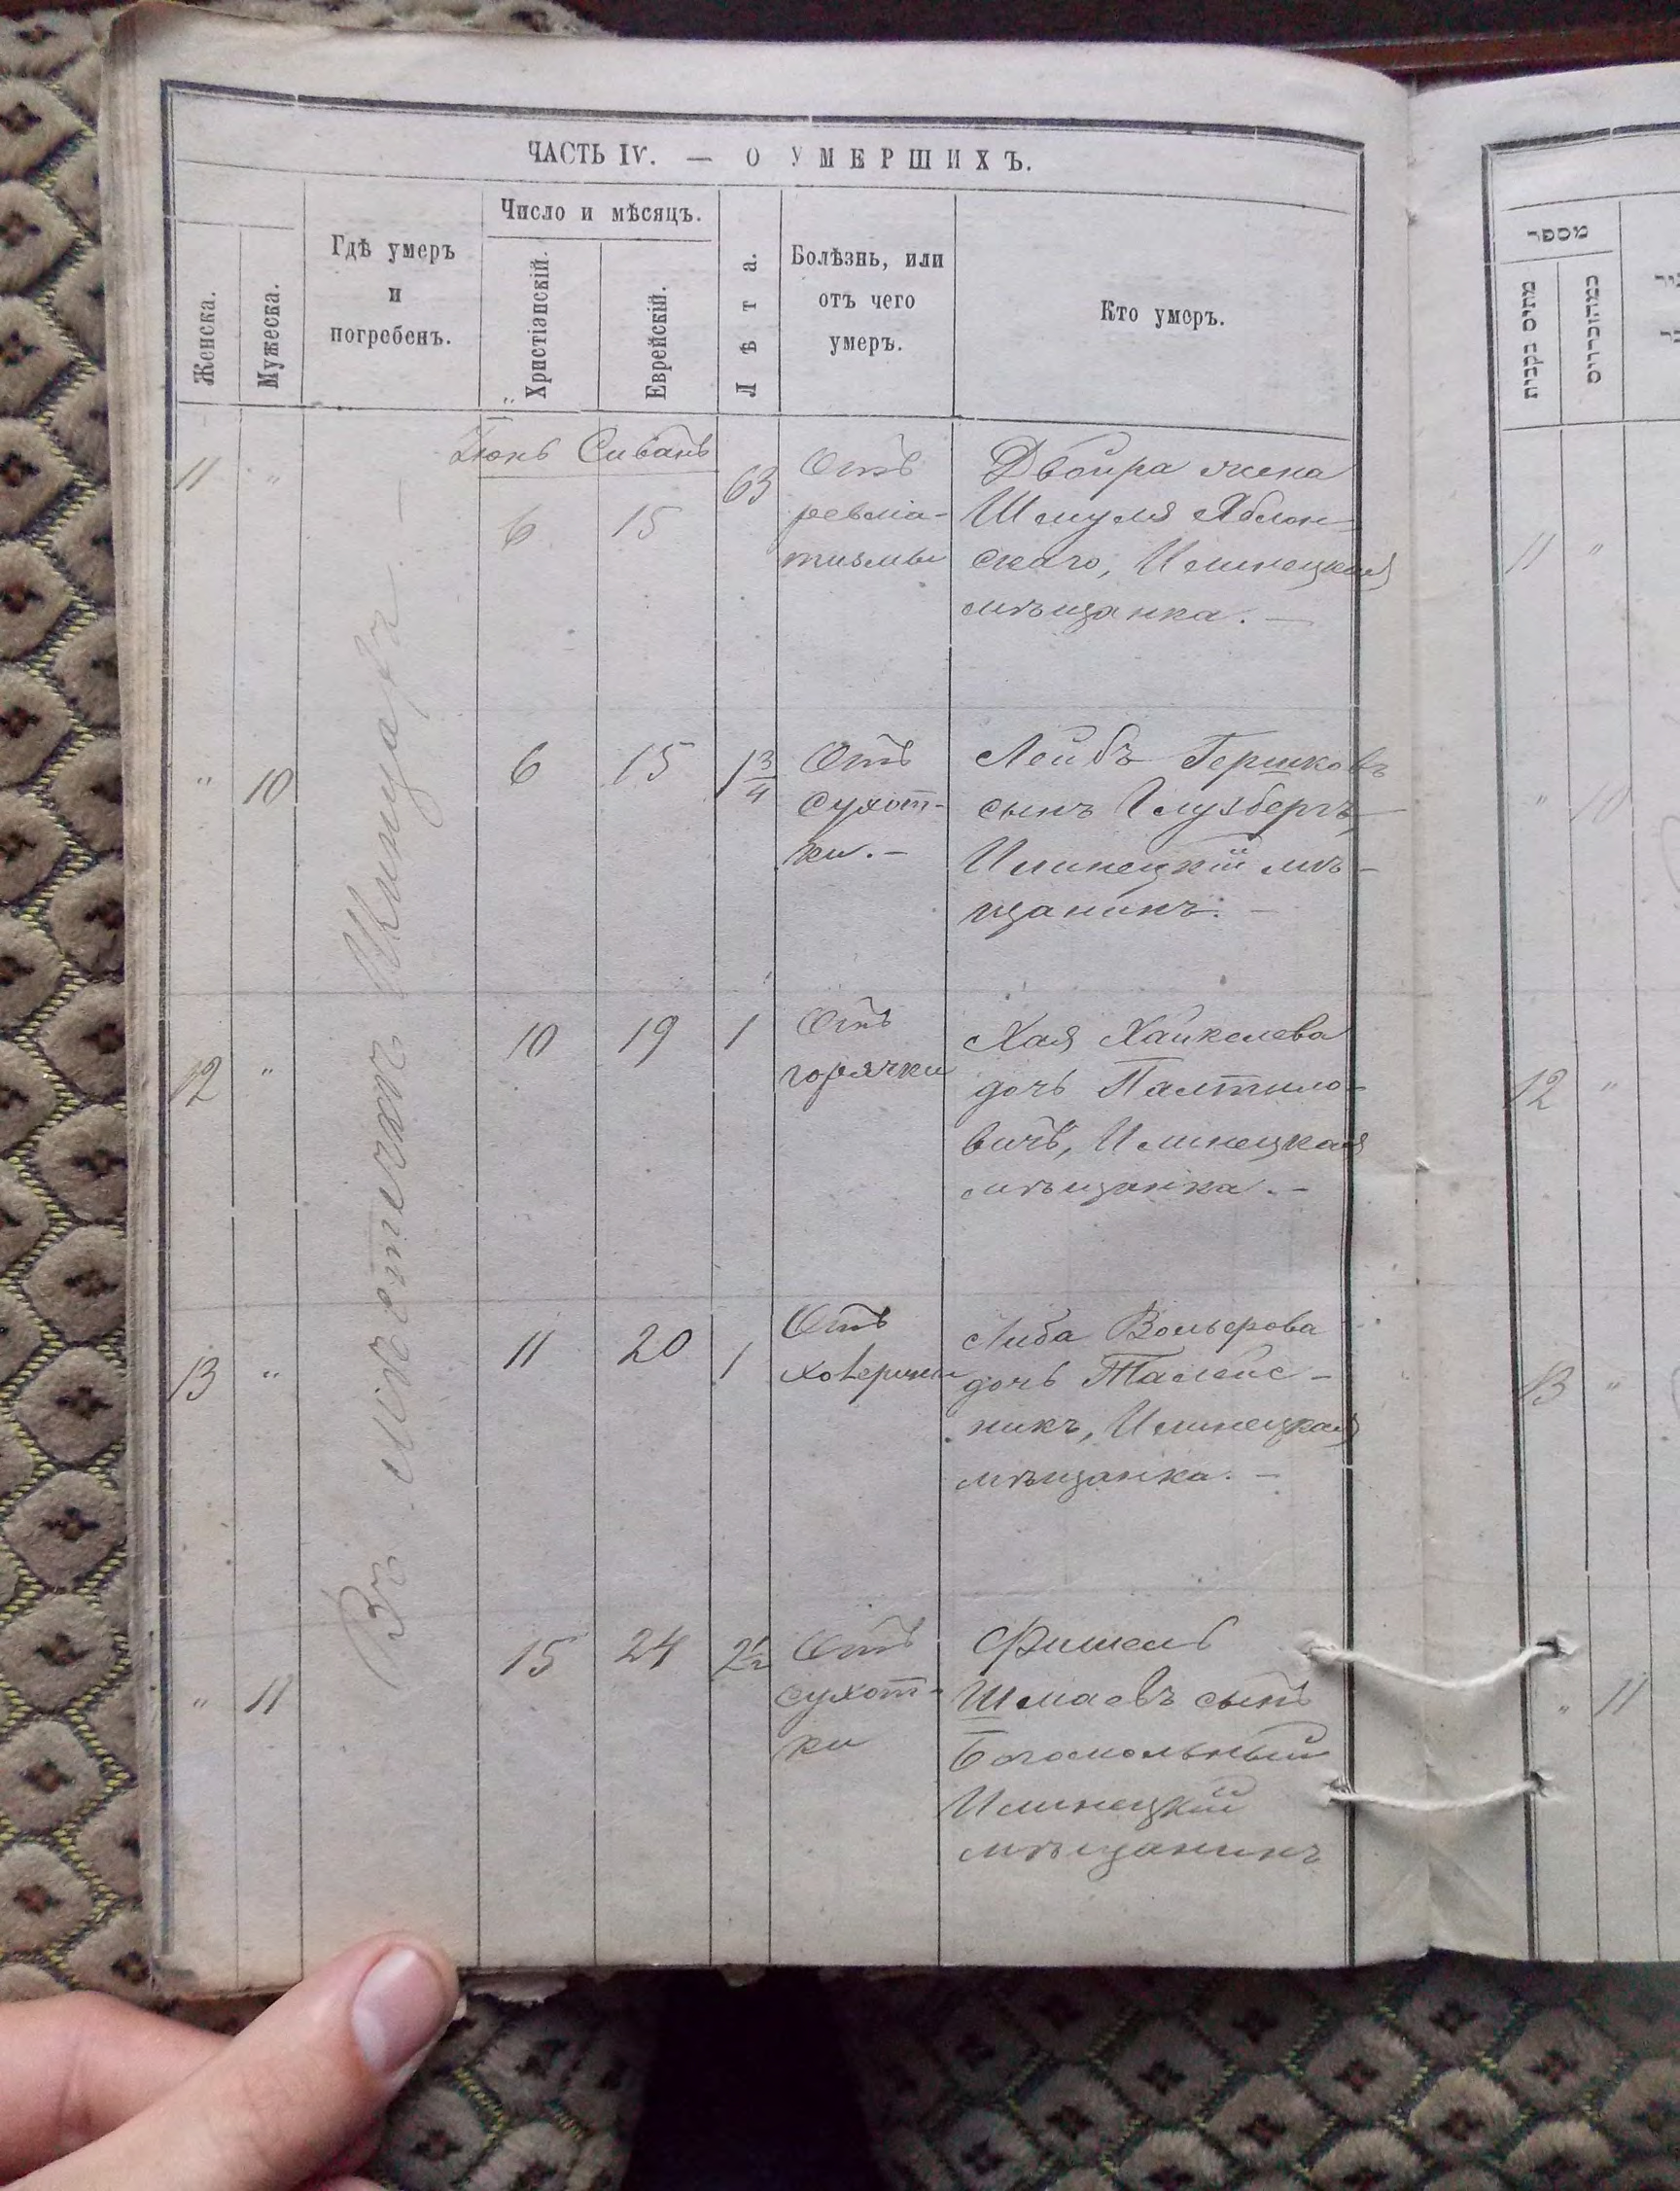 ЧАСТЬ IV. — О УМЕРШИХЪ.
Женска.
Мужеска.
Гдѣ умеръ
и
погребенъ.
Число и мѣсяцъ.
Христіанскій.
Еврейскій.
Лѣта.
Болѣзнь, или
отъ чего
умеръ.
Кто умеръ.
Въ мѣстечкѣ Илинцахъ —
Іюнь Сиванъ
11 " 6 15 63
Отъ
ревма-
тизмы
Двойра жена
Шмуля Яблон-
скаго, Илинецкая
мѣщанка. —
" 10 6 15 1 3/4
Отъ
сухот-
ки. —
Лейбъ Гершковъ
сынъ Глузбергъ,
Илинецкій мѣ-
щанинъ. —
12 " 10 19 1
Отъ
горячки
Хая Хайкелева
дочь Палтило-
вичъ, Илинецкая
мѣщанка. —
13 " 11 20 1
Отъ
Либа Вольфова
дочь
никъ, Илинецкая
мѣщанка. —
" 11 15 24 2 1/2
Отъ
сухот-
ки
Фишель
Шмаевъ сынъ
Богомольный
Илинецкій
мѣщанинъ
מספר
מתים נקבות
11 "
" 10
12 "
13 "
" 11